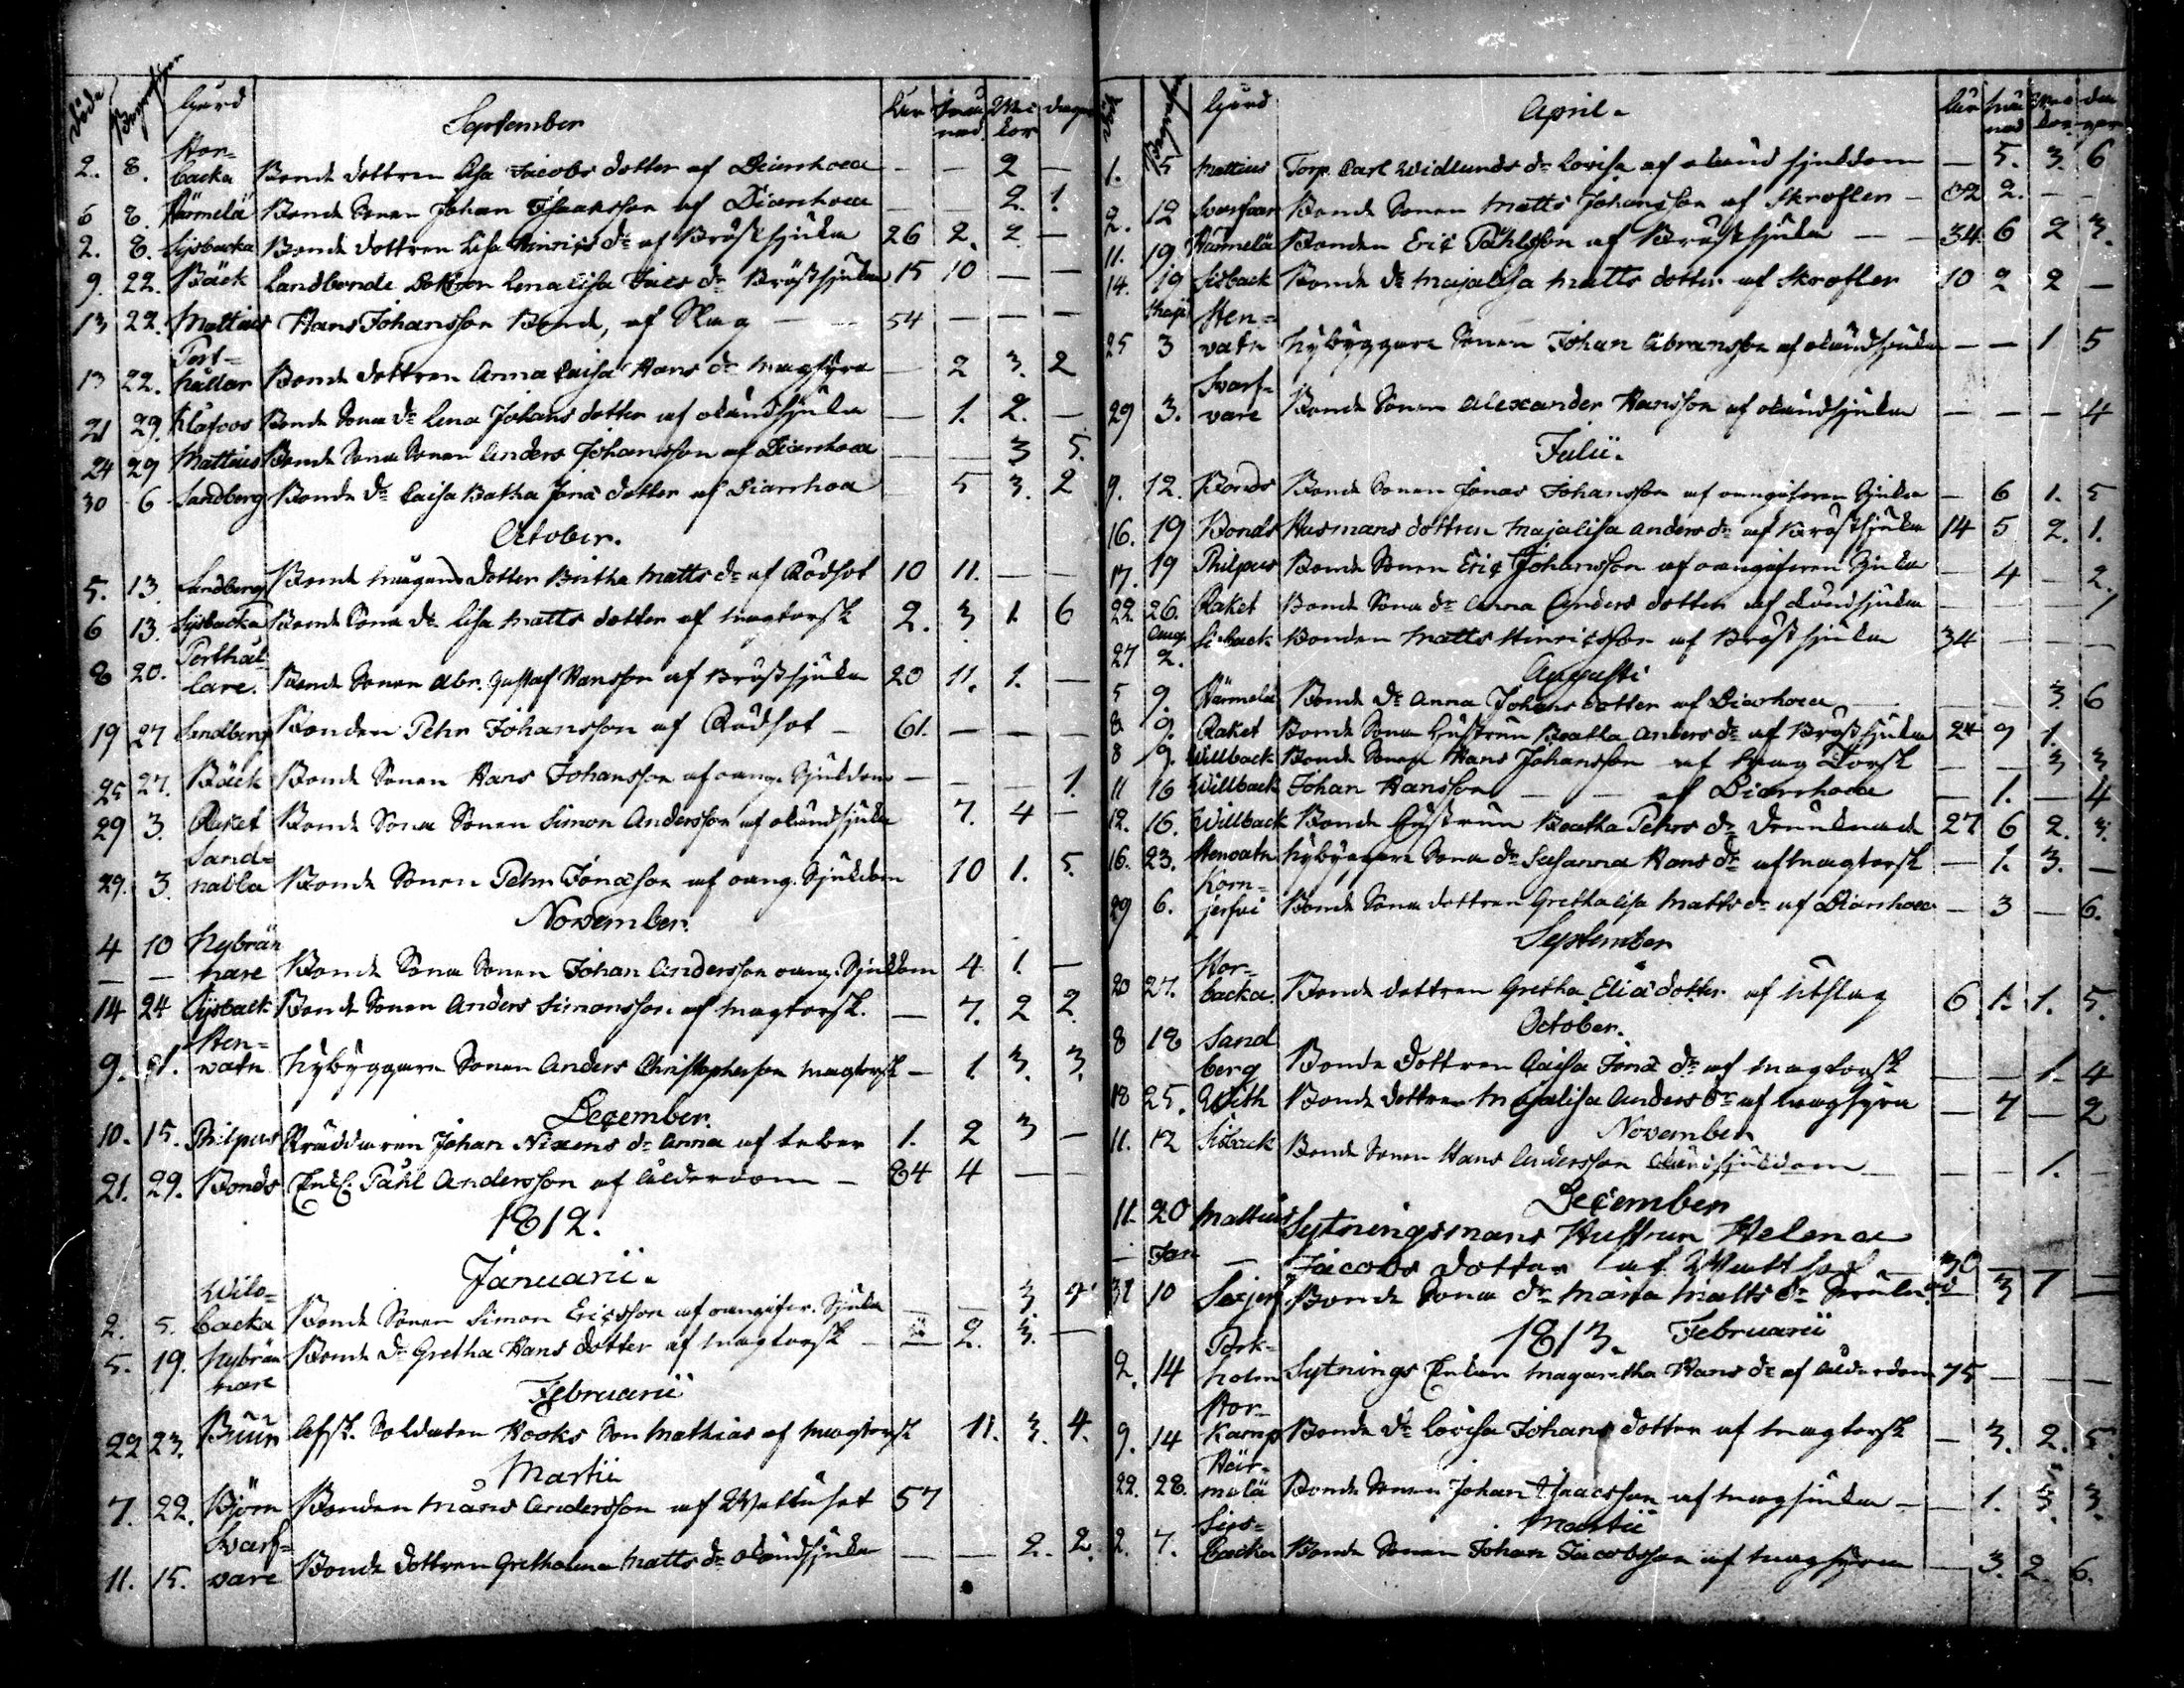 Döde Begrafven Gård September Åar månad Weckor dagar
Hor-
2. 8. backa Bonde dottren Lisa Jacobs dotter af Diarrhoea — — 2 —
6 8. Härmelä Bonde Sonen Johan Isaacsson af Diarrhoea — — 2. 1.
2. 8. Sysbacka Bonde dottren Lisa Hinrics dr af Bröstsjuka 26 2. 2. —
9. 22. Bäck Landbonde Dottren Lenalisa Jacs dr Bröstsjukan 15 10 — —
13 22. Mattius Hans Johansson Bonde, af Slag — 54 — — —
Port-
13 22. hällar Bonde dottren Anna Caisa Hans dr magsyra — 2 3. 2
21 29. Klåfvos Bonde Sona dr Lena Johans dotter af okändsjuka — 1. 2. —
24 29 Mattius Bonde Sona Sonen Anders Johansson af Diarrhoea — — 3 5.
30 6 Sandberg Bonde dr Caisa Batha Jona dotter af Diarrhoa 5 3. 2
October.
5. 13. Sandberg Bonde mågens dotter Britha Matts dr af Rödsot 10 11. — —
6 13. Sysbacka Bonde Sona dr Lisa Matts dotter af magtorsk 2. 3 1. 6
Porthäl-
8 20. lare. Bonde Sonen Abr. Gustaf Hansson af Bröstsjuka 20 11. 1. —
19 27 Sandberg Bonden Pehr Johansson af Rödsot — 61. — — —
25 27. Bäck Bonde Sonen Hans Johansson af oang. Sjukdom — — — 1.
29 3. Raket Bonde Sona Sonen Simon Andersson af okändsjuka 7. 4 —
Sand-
29. 3. nabba Bonde Sonen Pehr Jonasson af oang. Sjukdom 10 1. 5.
November.
4 10 Nybrän
— — nare Bonde Sona Sonen Johan Andersson oang. Sjukdom 4 1. —
14 24 Sysback Bonde Sonen Anders Simonsson af magtorsk. — 7. 2 2.
Sten-
9. 21. watn Nybyggare Sonen Anders Christophersson magtorsk — 1. 3. 3.
December.
10. 15. Philpus Skräddaren Johan Nixens dr Anna af feber 1. 2 3 —
21. 29. Bonds Enkl. Påhl Andersson af ålderdom — 84 4 — —
1812.
Januarii.
Wilo-
2. 5. backa Bonde Sonen Simon Ericsson af oangifv. Sjuka — — 3.
5. 19. Nybrän Bonde dr Gretha Hans dotter af magtorsk — 2. 3. —
nare
Februarii
22 23. Buur Afsk. Soldaten Hooks Son Mathias af magtorsk 11. 3. 4.
Martii
7. 22. Björn Bonden Måns Andersson af Wattusot 57
Svarf-
11. 15. vare Bonde dottren Grethalena Matts dr Okändsjuka — — 2. 2.
Gård April. Åar månad Weckor dagar
1. 5 Mattius Torp. Carl Widlunds dr Lovisa af okänd sjukdom — 5. 3. 6
2. 12 Svarfvar Bonde Sonen Matts Johansson af Skrofler — 32 2. — —
11. 19. Härmelä Bonden Eric Påhlsson af Bröstsjuka — 34 6 2 3.
14. 19 Sisback Bonde dr Majalisa Matts dotter af Skrofler 10 2 2 —
Maji Sten-
25 3 watn Nybyggare Sonen Johan Abramsson af okändsjuka — — 1 5
Svarf-
29 3. vare Bonde Sonen Alexander Hansson af okändsjuka — — — 4
Julii.
9. 12. Bonds Bonde Sonen Jonas Johansson af oangifven Sjuka — 6 1. 5
16. 19 Bonds Husmans dottren Majalisa Anders dr af Bröstsjuka 14 5 2. 1.
17. 19 Philpus Bonde Sonen Eric Johansson af oangifven Sjuka — 4 — 2.
22. 26. Raket Bonde Sona dr Anna Anders dotter af okändsjuka — — — 1
Aug.
27 2. Sisback Bonden Matts Henricsson af Bröstsjuka 34 — — —
Augusti
5 9. Härmelä Bonde dr Anna Johans dotter af Diarhoea — — 3 6
8 9. Raket Bonde Sona Hustrun Beatha Anders dr af Bröstsjuka 24 9 1.
8 9. Willback Bonde Sonen Hans Johansson af mag Torsk — — 3 3
11 16 Willback Johan Hansson — af Diarrhoea — 1. — 4
12. 16. Willback Bonde Enstrun Beatha Pehrs dr Drunknade 27 6 2. 3.
16. 23. Stenvatn Nybyggare Sona dr Susanna Hans dr af magtorsk — 1. 3. —
Korn-
29 6. jerfvi Bonde Sona dottren Grethalisa Matts dr af Diarrhoea — 3 — 6.
September
Hor-
20 27. backa. Bonde dottren Gretha Elia dotter af Utslag 6. 1. 1. 5.
October.
8 18 Sand
berg Bonde Dottren Caisa Jona dr af magtorsk — — 1. 4
18 25. With Bonde dottren Majalisa Anders dr af magsyra — 7 — 2
November
11. 12 Sisback Bonde Sonen Hans Andersson Okändsjukdom — — 1. —
December
11. 20 Mattius Sytningsmans Hustrun Helena
— Jan — Jacobs dotter af Wattsot — 30 — — —
31 10 Bonde Sona dr Maria Matts dr — 3 1 —
1813. Februarii
Pork-
2. 14 holm Sytnings Enkan Magaretha Hans dr af ålderdom 75 — — —
Hor-
9. 14 Kamp Bonde dr Lovisa Johans dotter af magtorsk — 3. 2. 5.
Här-
22. 28. melä Bonde Sonen Johan Isaacsson af magsjuka — 1. 3. 3.
Sys- Martii
2. 7. backa Bonde Sonen Johan Jacobsson af magsyra — 3. 2. 6.